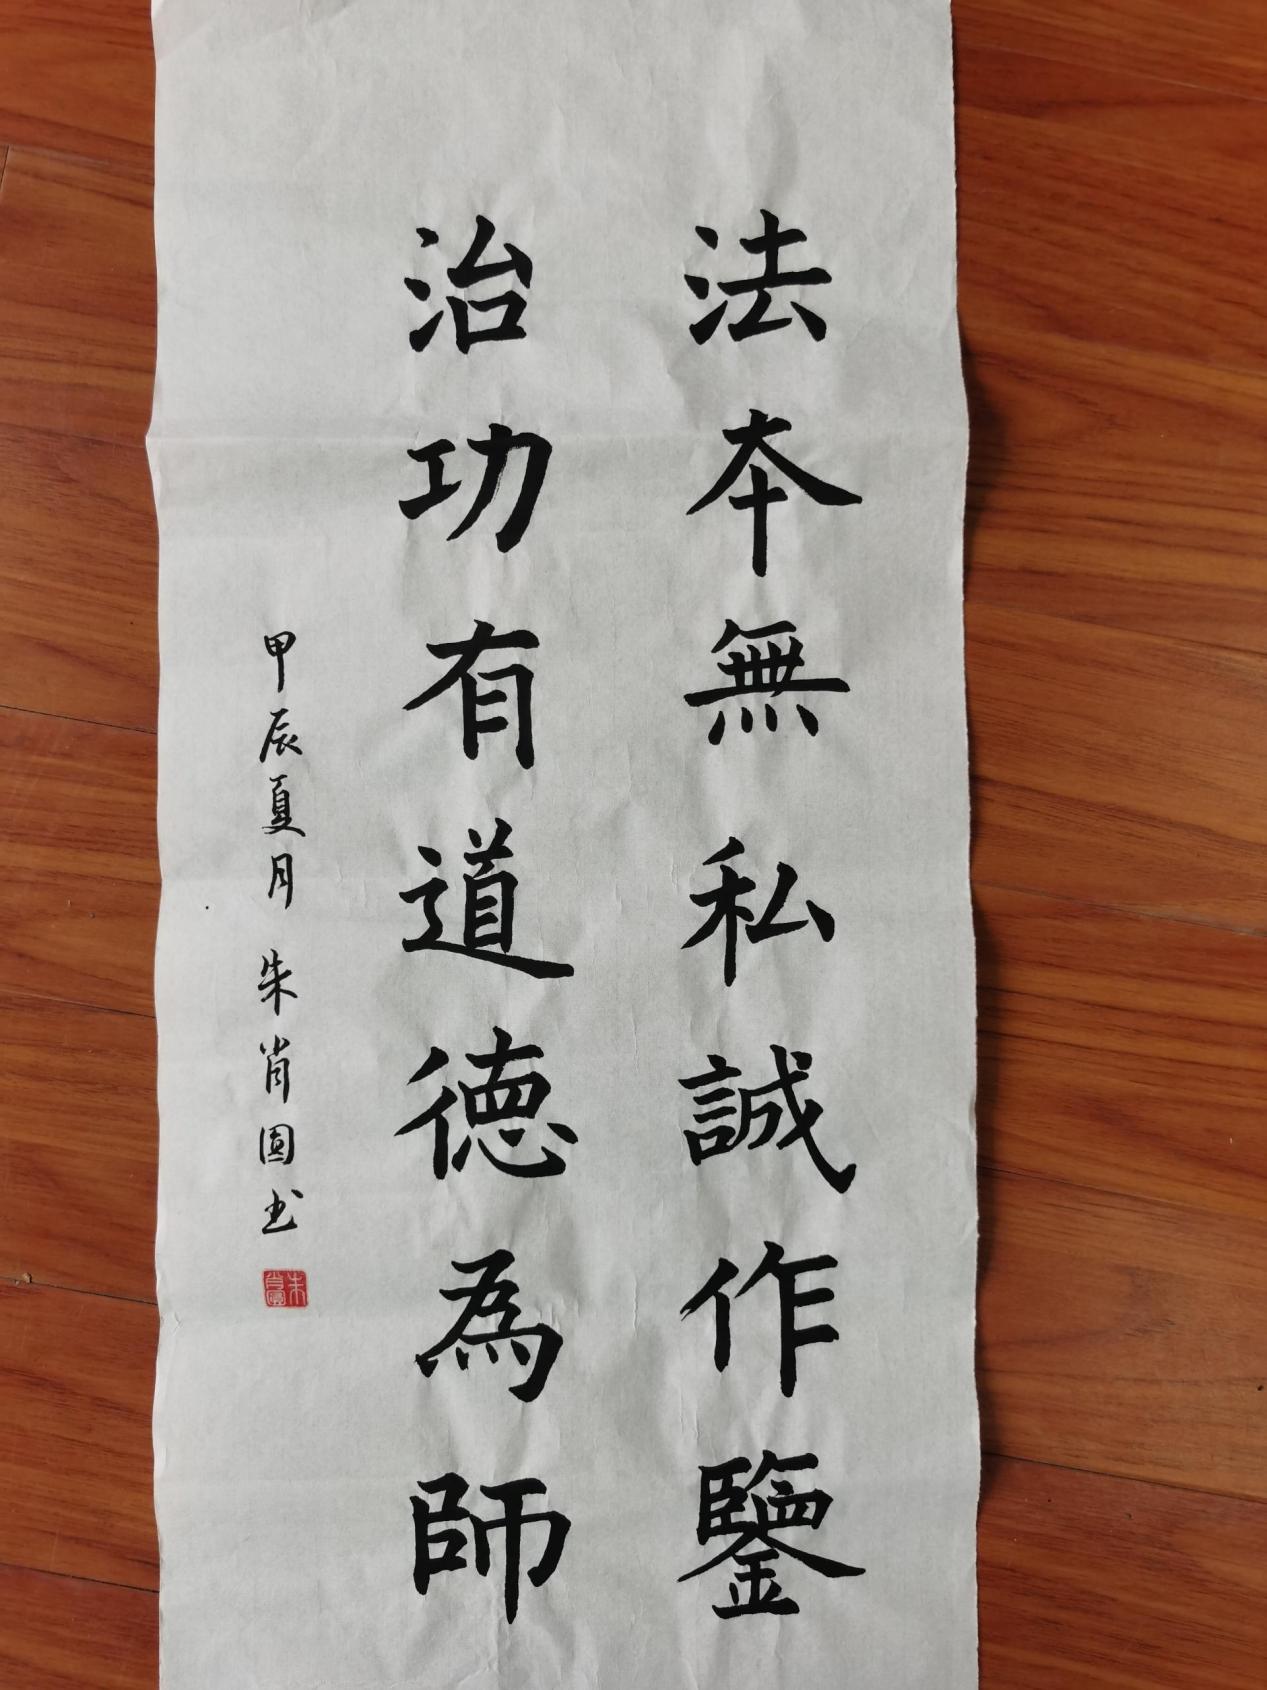 法本無私誠作鑒
治功有道德為師
甲辰夏月 朱肖圓书
朱肖圓